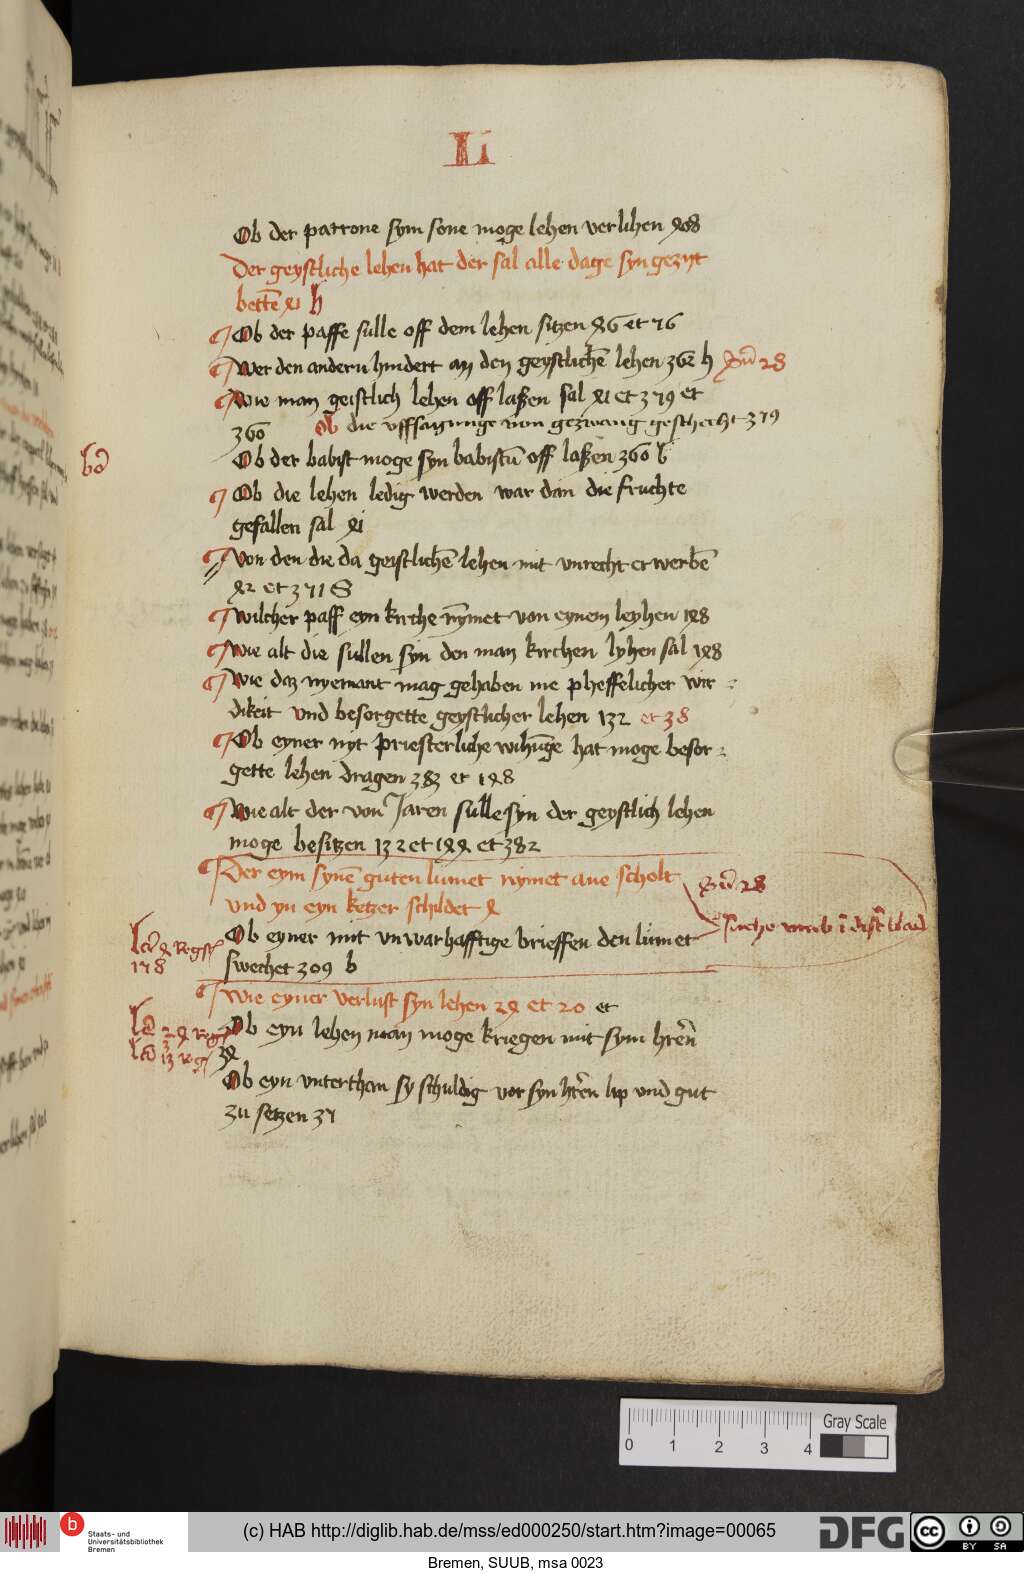 Li
Ob der patrone sym sone moge lehen verlihen 408
Der geystliche lehen hat der sal alle dage syn gezyt
bettē 41 h
Ob der paffe sulle off dem lehen sitzen 46 et 76
Wer den andern hindert an den geystlichē lehen 362 h 28
Wie man geistlich lehen off laßen sal 41 et 379 et
360 Ob die uffsagunge von gezwang geschecht 379
Ob der babist moge syn babistū off laßen 360 b
Ob die lehen ledig werden war dan die fruchte
gefallen sal 41
Von den die da geistlichē lehen mit unrecht erwerbē
42 et 371 S
Wilcher paff eyn kirche nȳmet von eynem leyhen 148
Wie alt die sullen syn den man kirchen lyhen sal 148
Wie daz nyemant mag gehaben me pheffelicher wir
dikeit und besorgette geystlicher lehen 132 et 38
Ob eyner nyt priesterliche wihūge hat moge besor
gette lehen dragen 383 et 148
Wie alt der von Jaren sulle syn der geystlich lehen
moge besitzen 132 et 144 et 382
Der eym synē guten lumet nymet ane scholt
und yn eyn ketzer schildet 4
28
suche umb ī dist blad
Ob eyner mit unwarhafftige brieffen den lumet
swechet 309 b
178
Wie eyner verlust syn lehen 24 et 20 et
Ob eyn lehen man moge kriegen mit sym hrēn
34
Ob eyn unterthan sy schuldig vor syn hrēn lip und gut
zu setzen 37
0 1 2 3 4
Gray Scale
b
Staats- und
Universitätsbibliothek
Bremen
(c) HAB http://diglib.hab.de/mss/ed000250/start.htm?image=00065
DFG
cc
BY SA
Bremen, SUUB, msa 0023